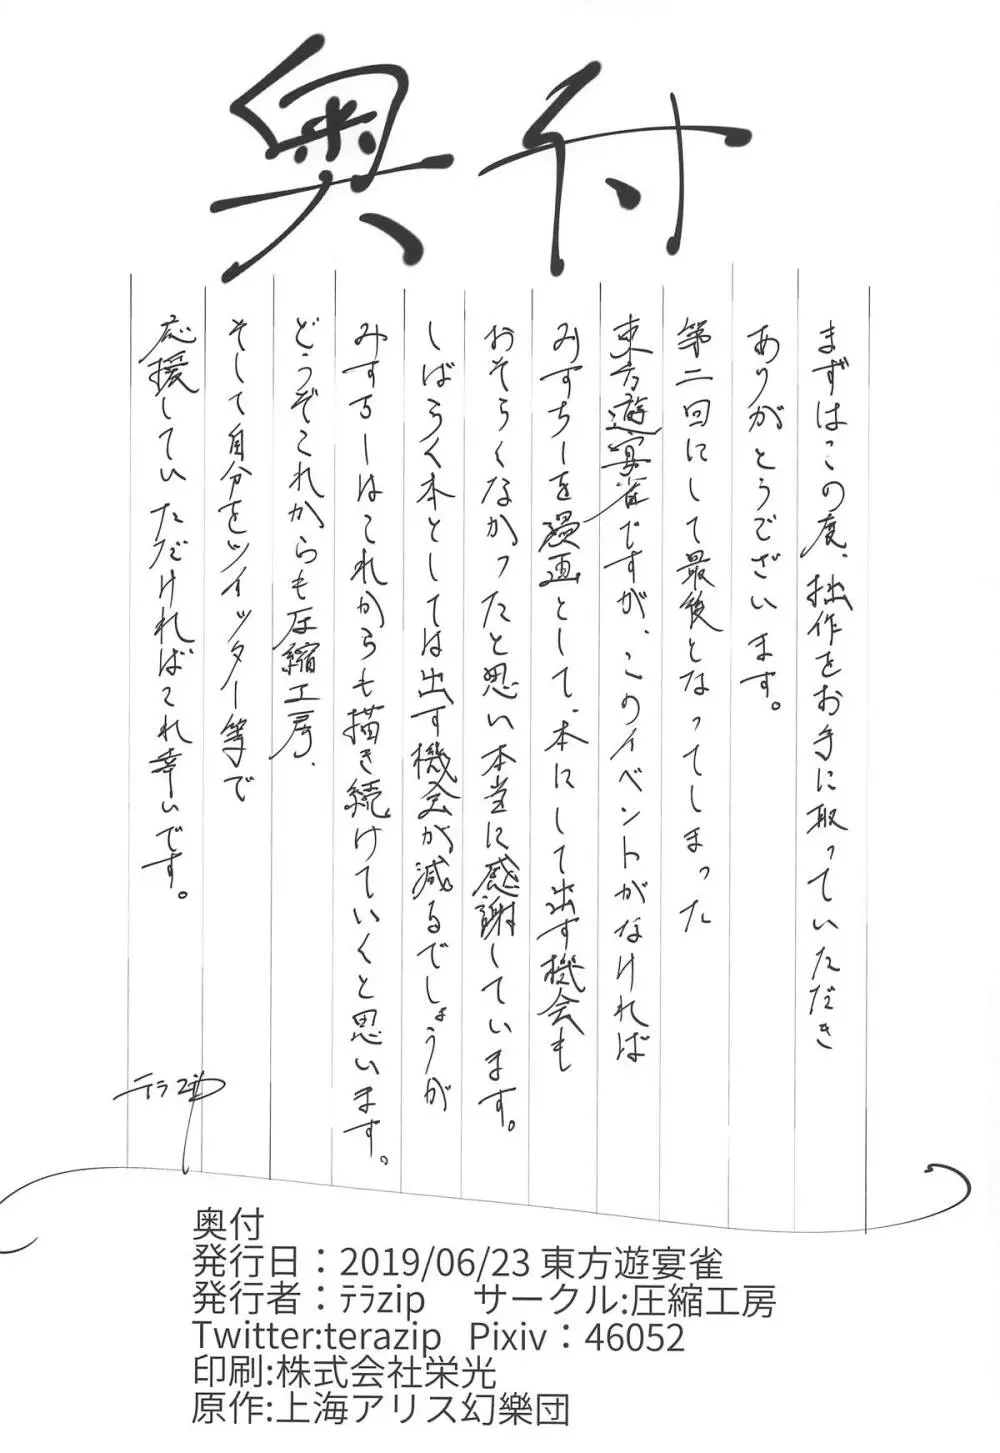 奥付
まずはこの度、拙作をお手に取っていただき
ありがとうございます。
第二回にして最後となってしまった
東方遊宴雀ですが、このイベントがなければ
みすちーを漫画として、本にして出す機会も
おそらくなかったと思い本当に感謝しています。
しばらく本としては出す機会が減るでしょうが
みすちーはこれからも描き続けていくと思います。
どうぞこれからも圧縮工房、
そして自分をツイッター等で
応援していただければこれ幸いです。
テラzip
奥付
発行日：2019/06/23 東方遊宴雀
発行者：ﾃﾗzip サークル:圧縮工房
Twitter:terazip Pixiv：46052
印刷:株式会社栄光
原作:上海アリス幻樂団